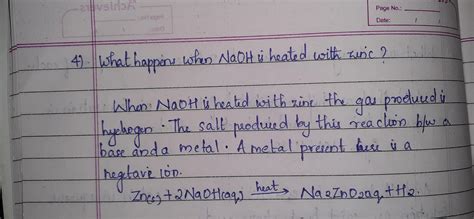 Achievers
Page No.:
Date: / /
4) What happens when NaOH is heated with zinc ?
When NaOH is heated with zinc the gas produced is
hydrogen . The salt produced by this reaction b/w a
base and a metal . A metal present here is a
negtave ion.
Zn(s) + 2NaOH(aq) heat → Na2ZnO2aq + H2.